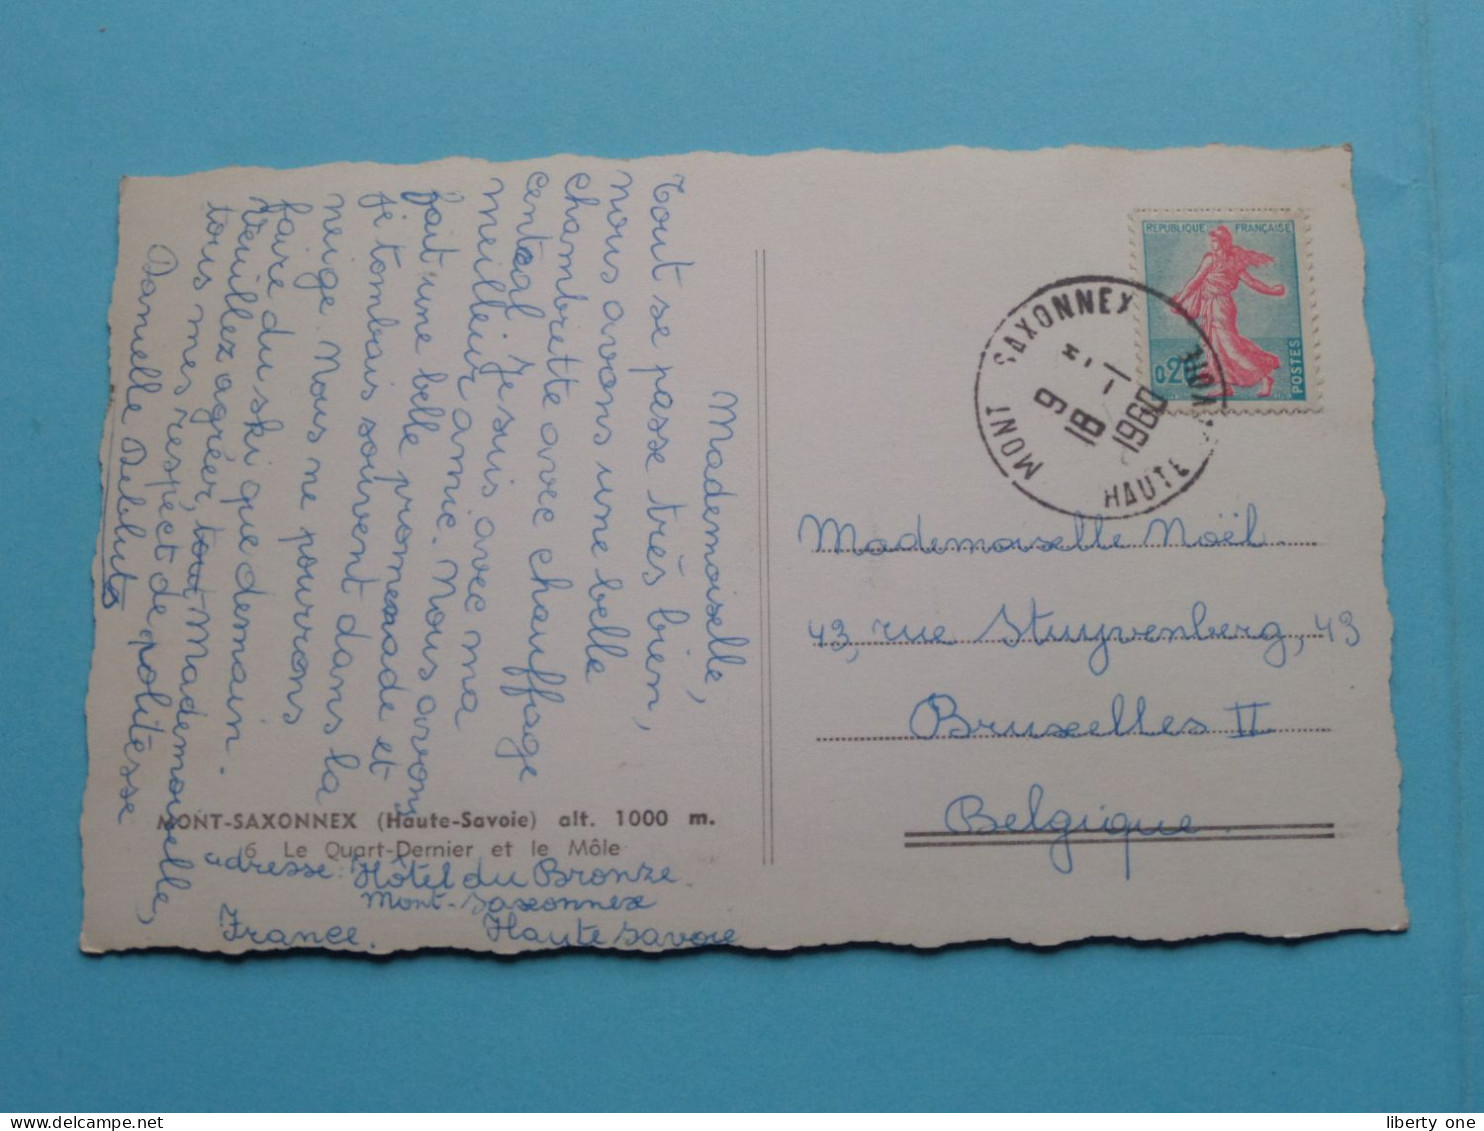 Mademoiselle,
Tout se passe très bien,
nous avons une belle
chambrette avec chauffage
central. Je suis avec ma
meilleur amie. Nous avons
fait une belle promenade et
je tombais souvent dans la
neige. Nous ne pourrons
faire du ski que demain.
Veuillez agréer, tout Mademoiselle,
tous mes respect de politesse
Danielle
MONT-SAXONNEX (Haute-Savoie) alt. 1000 m.
6 Le Quart-Dernier et le Môle
adresse: Hôtel du Bronze.
Mont-Saxonnex
Haute Savoie
France.
REPUBLIQUE FRANÇAISE
0,20
POSTES
MONT SAXONNEX
9 H
18 - 1
1960
HAUTE SAVOIE
Mademoiselle Noël.
43, rue Stuyvenberg, 43
Bruxelles II
Belgique.
liberty one